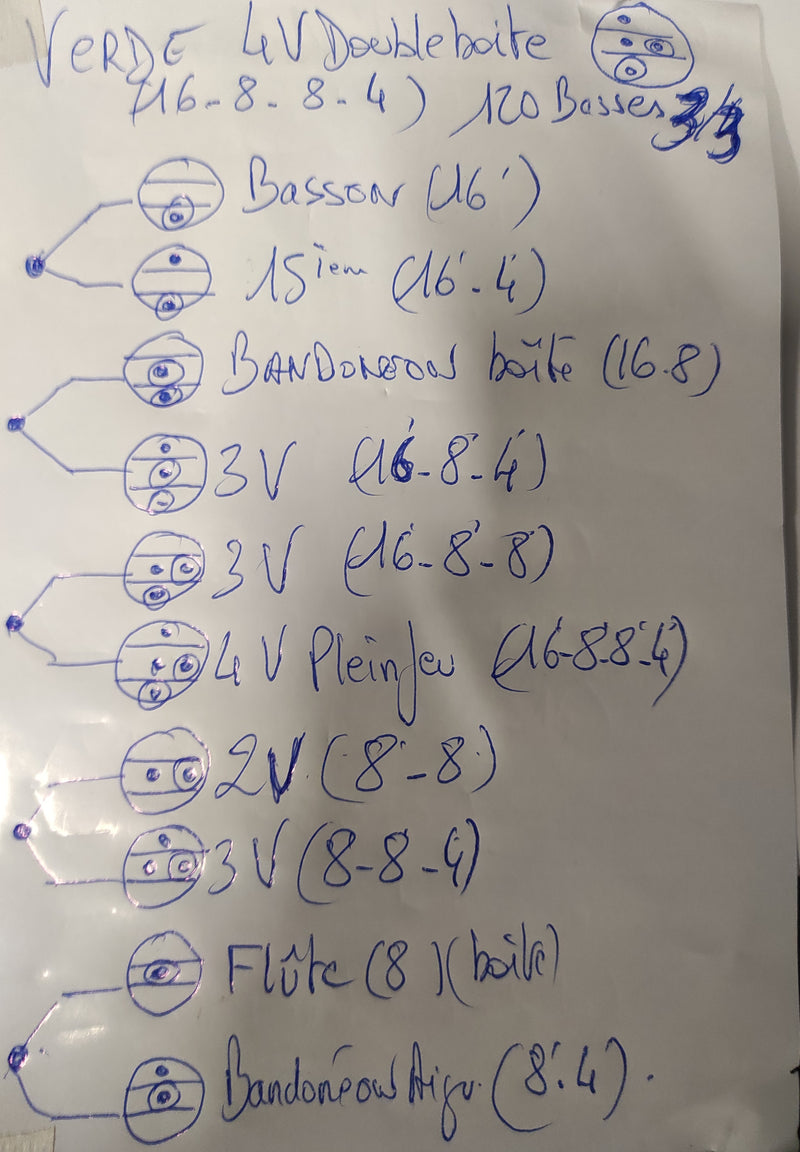 VERDE 4V Double boite
(16-8-8-4) 120 Basses 3/3
Basson (16')
15ièm (16'-4')
BANDONEON boîte (16.8)
3V (16'-8'-4')
3V (16'-8'-8')
4V Pleinjeu (16'-8'-8'-4')
2V (8'-8')
3V (8-8-4)
Flûte (8) (boite)
Bandonéon Aigu. (8'.4').